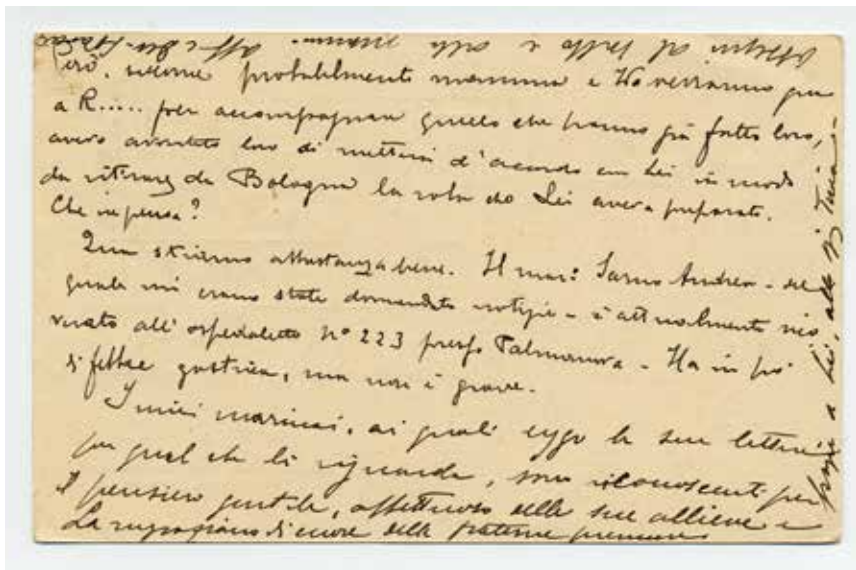 Però, siccome probabilmente mamma e verranno
a R..... per accompagnare quello che hanno già fatto loro,
avevo loro di mettersi d'accordo con Lei in modo
da ritirare da Bologna la roba che Lei aveva preparato.
Che ne pensa?
Qua stiamo abbastanza bene. Il mar: Sarno Andrea - del
quale mi erano state domandate notizie - è attualmente rico
verato all'ospedaletto Nº 223 presso Palmanova - Ha un po'
di febbre gastrica, ma non è grave.
I miei marinai, ai quali leggo le sue lettere
per quel che li riguarda, sono riconoscenti per
il pensiero gentile, affettuoso delle sue allieve e
La ringraziano di cuore della fraterna premura
a Lei, alla
Ossequi al babbo e alla mamma.